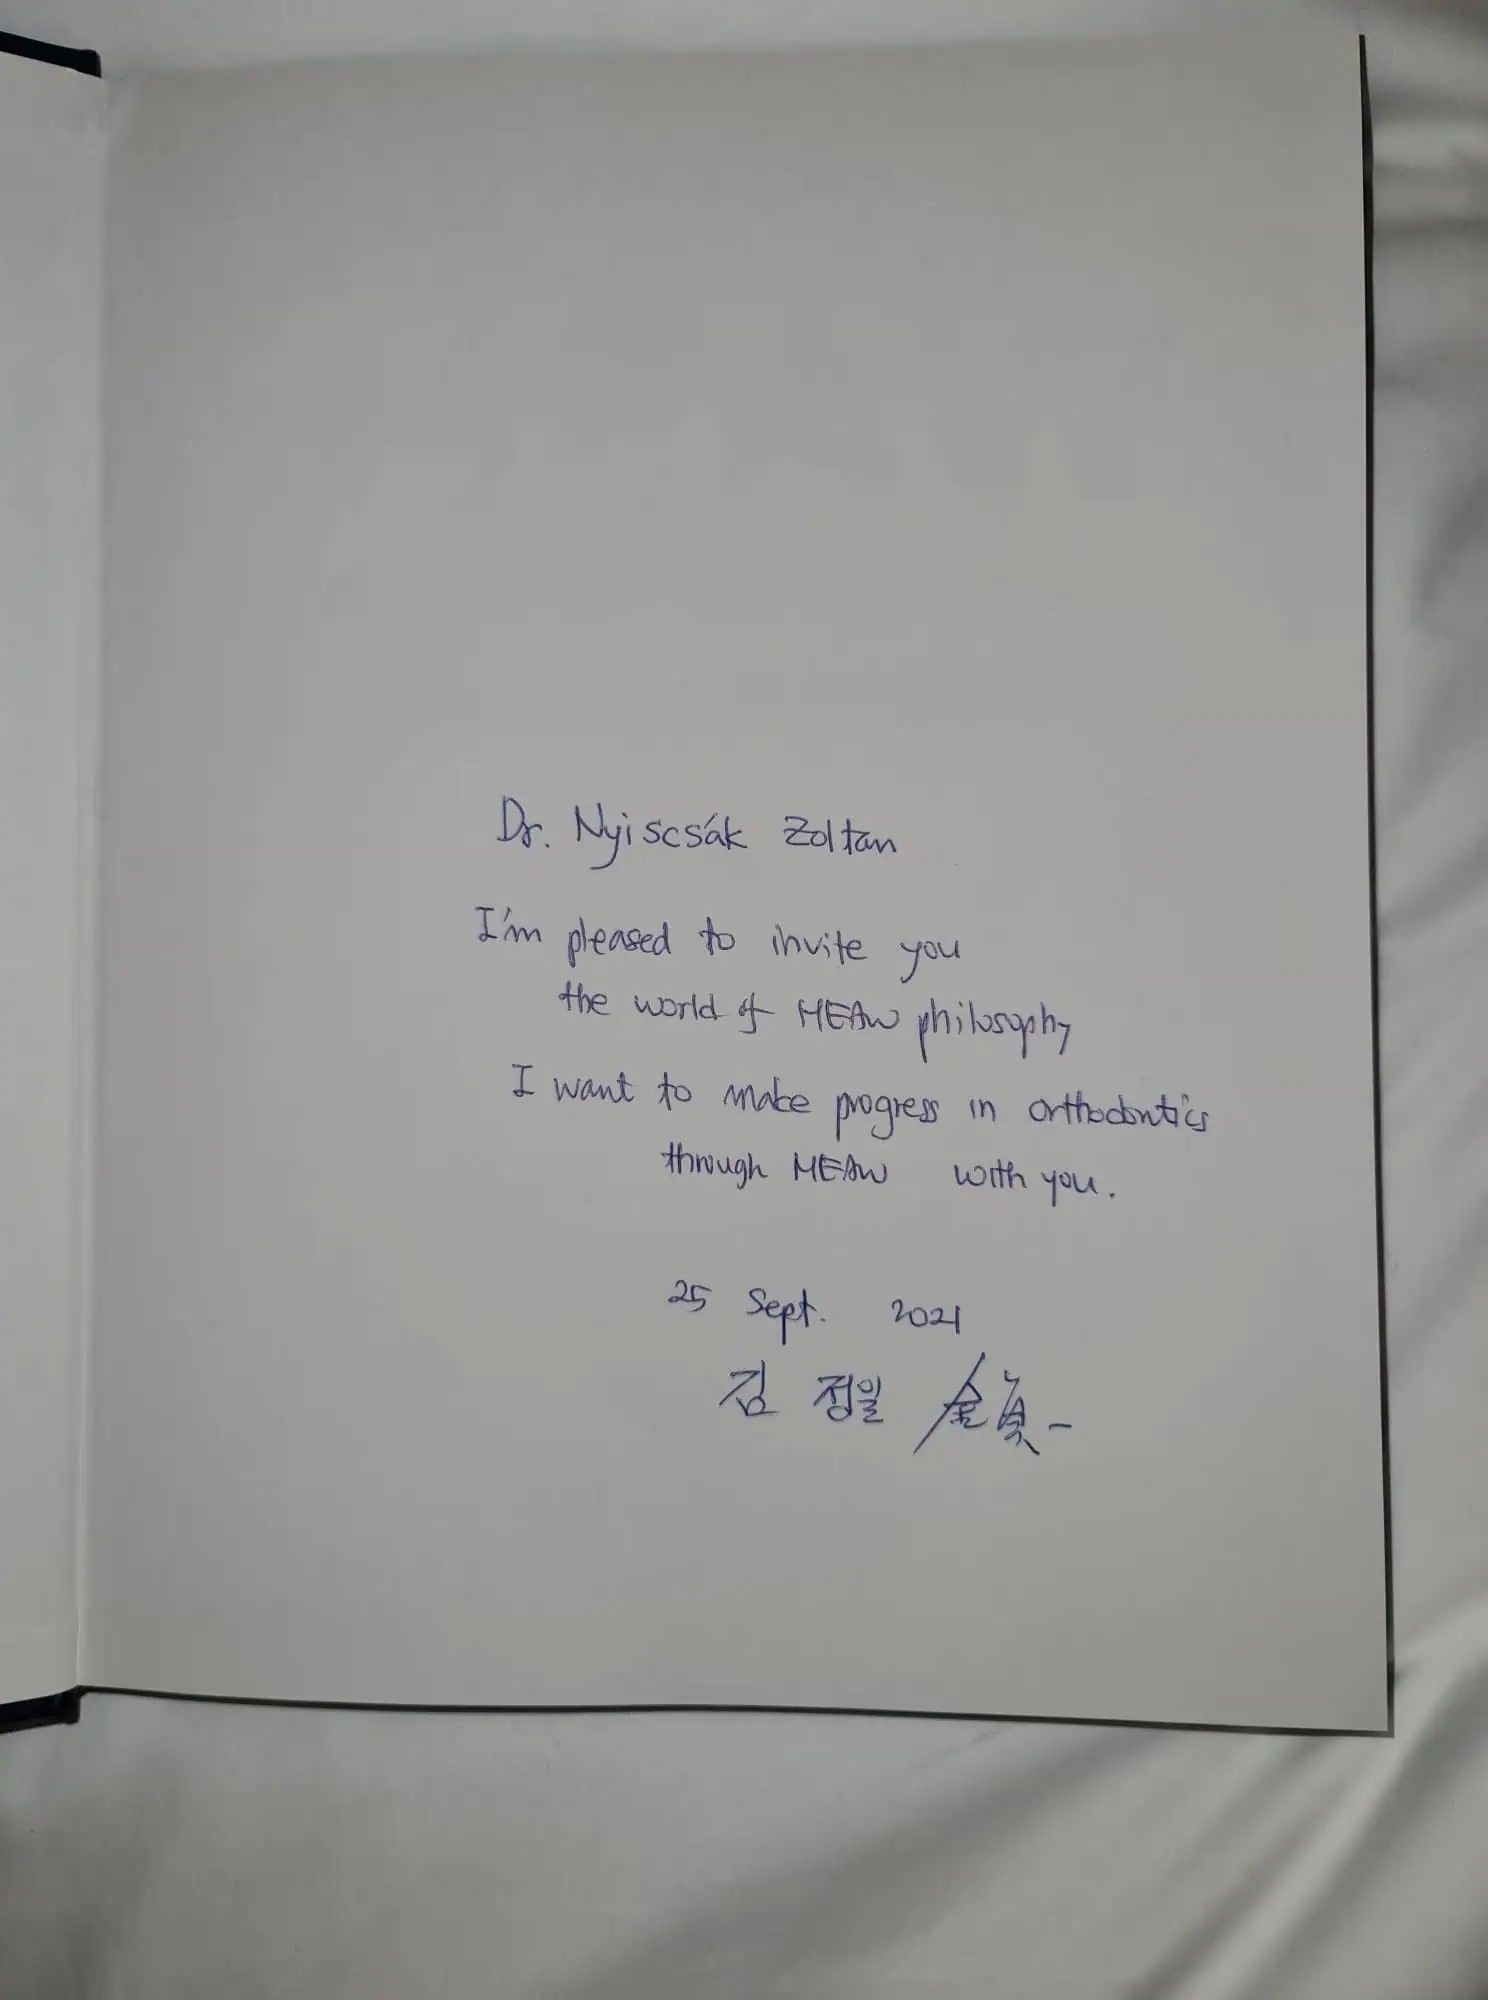 Dr. Nyiscsák Zoltan
I'm pleased to invite you
the world of MEAW philosophy
I want to make progress in orthodontics
through MEAW with you.
25 Sept. 2021
김 정일 金貞一